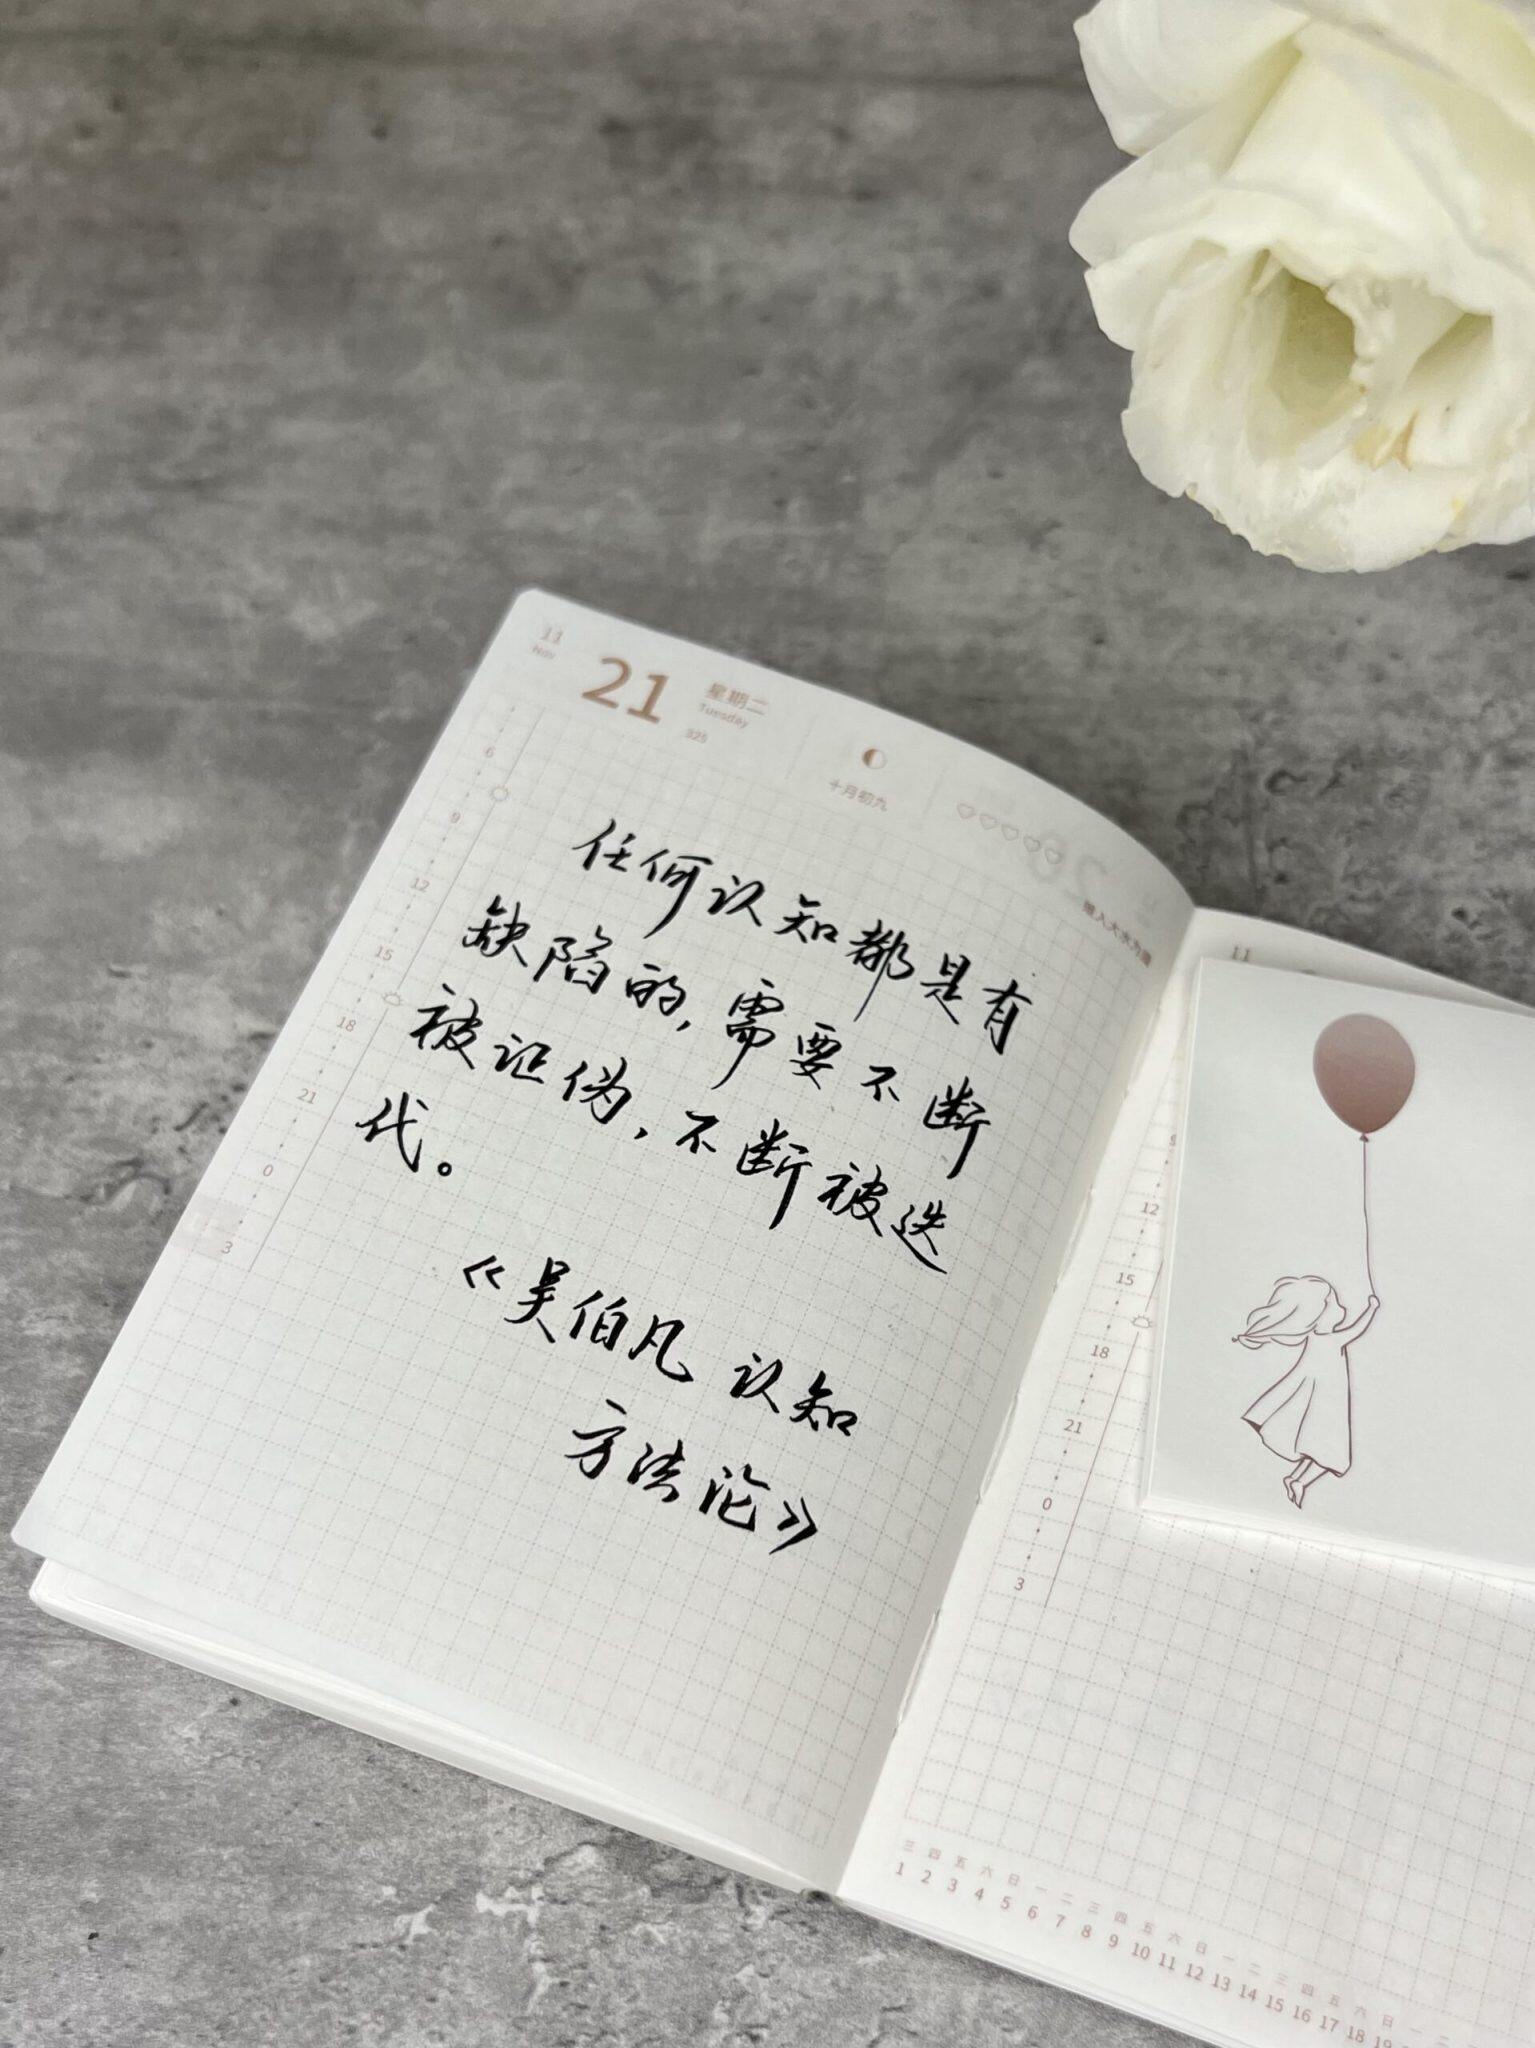 11
Nov
21
星期二
Tuesday
325
十月初九
任何认知都是有
缺陷的,需要不断
被证伪,不断被迭
代。
《吴伯凡 认知
方法论》
6
9
12
15
18
21
0
3
11
9
12
15
18
21
0
3
三 四 五 六 日 一 二 三 四 五 六 日 一 二 三 四 五 六 日 一 二
1 2 3 4 5 6 7 8 9 10 11 12 13 14 15 16 17 18 19